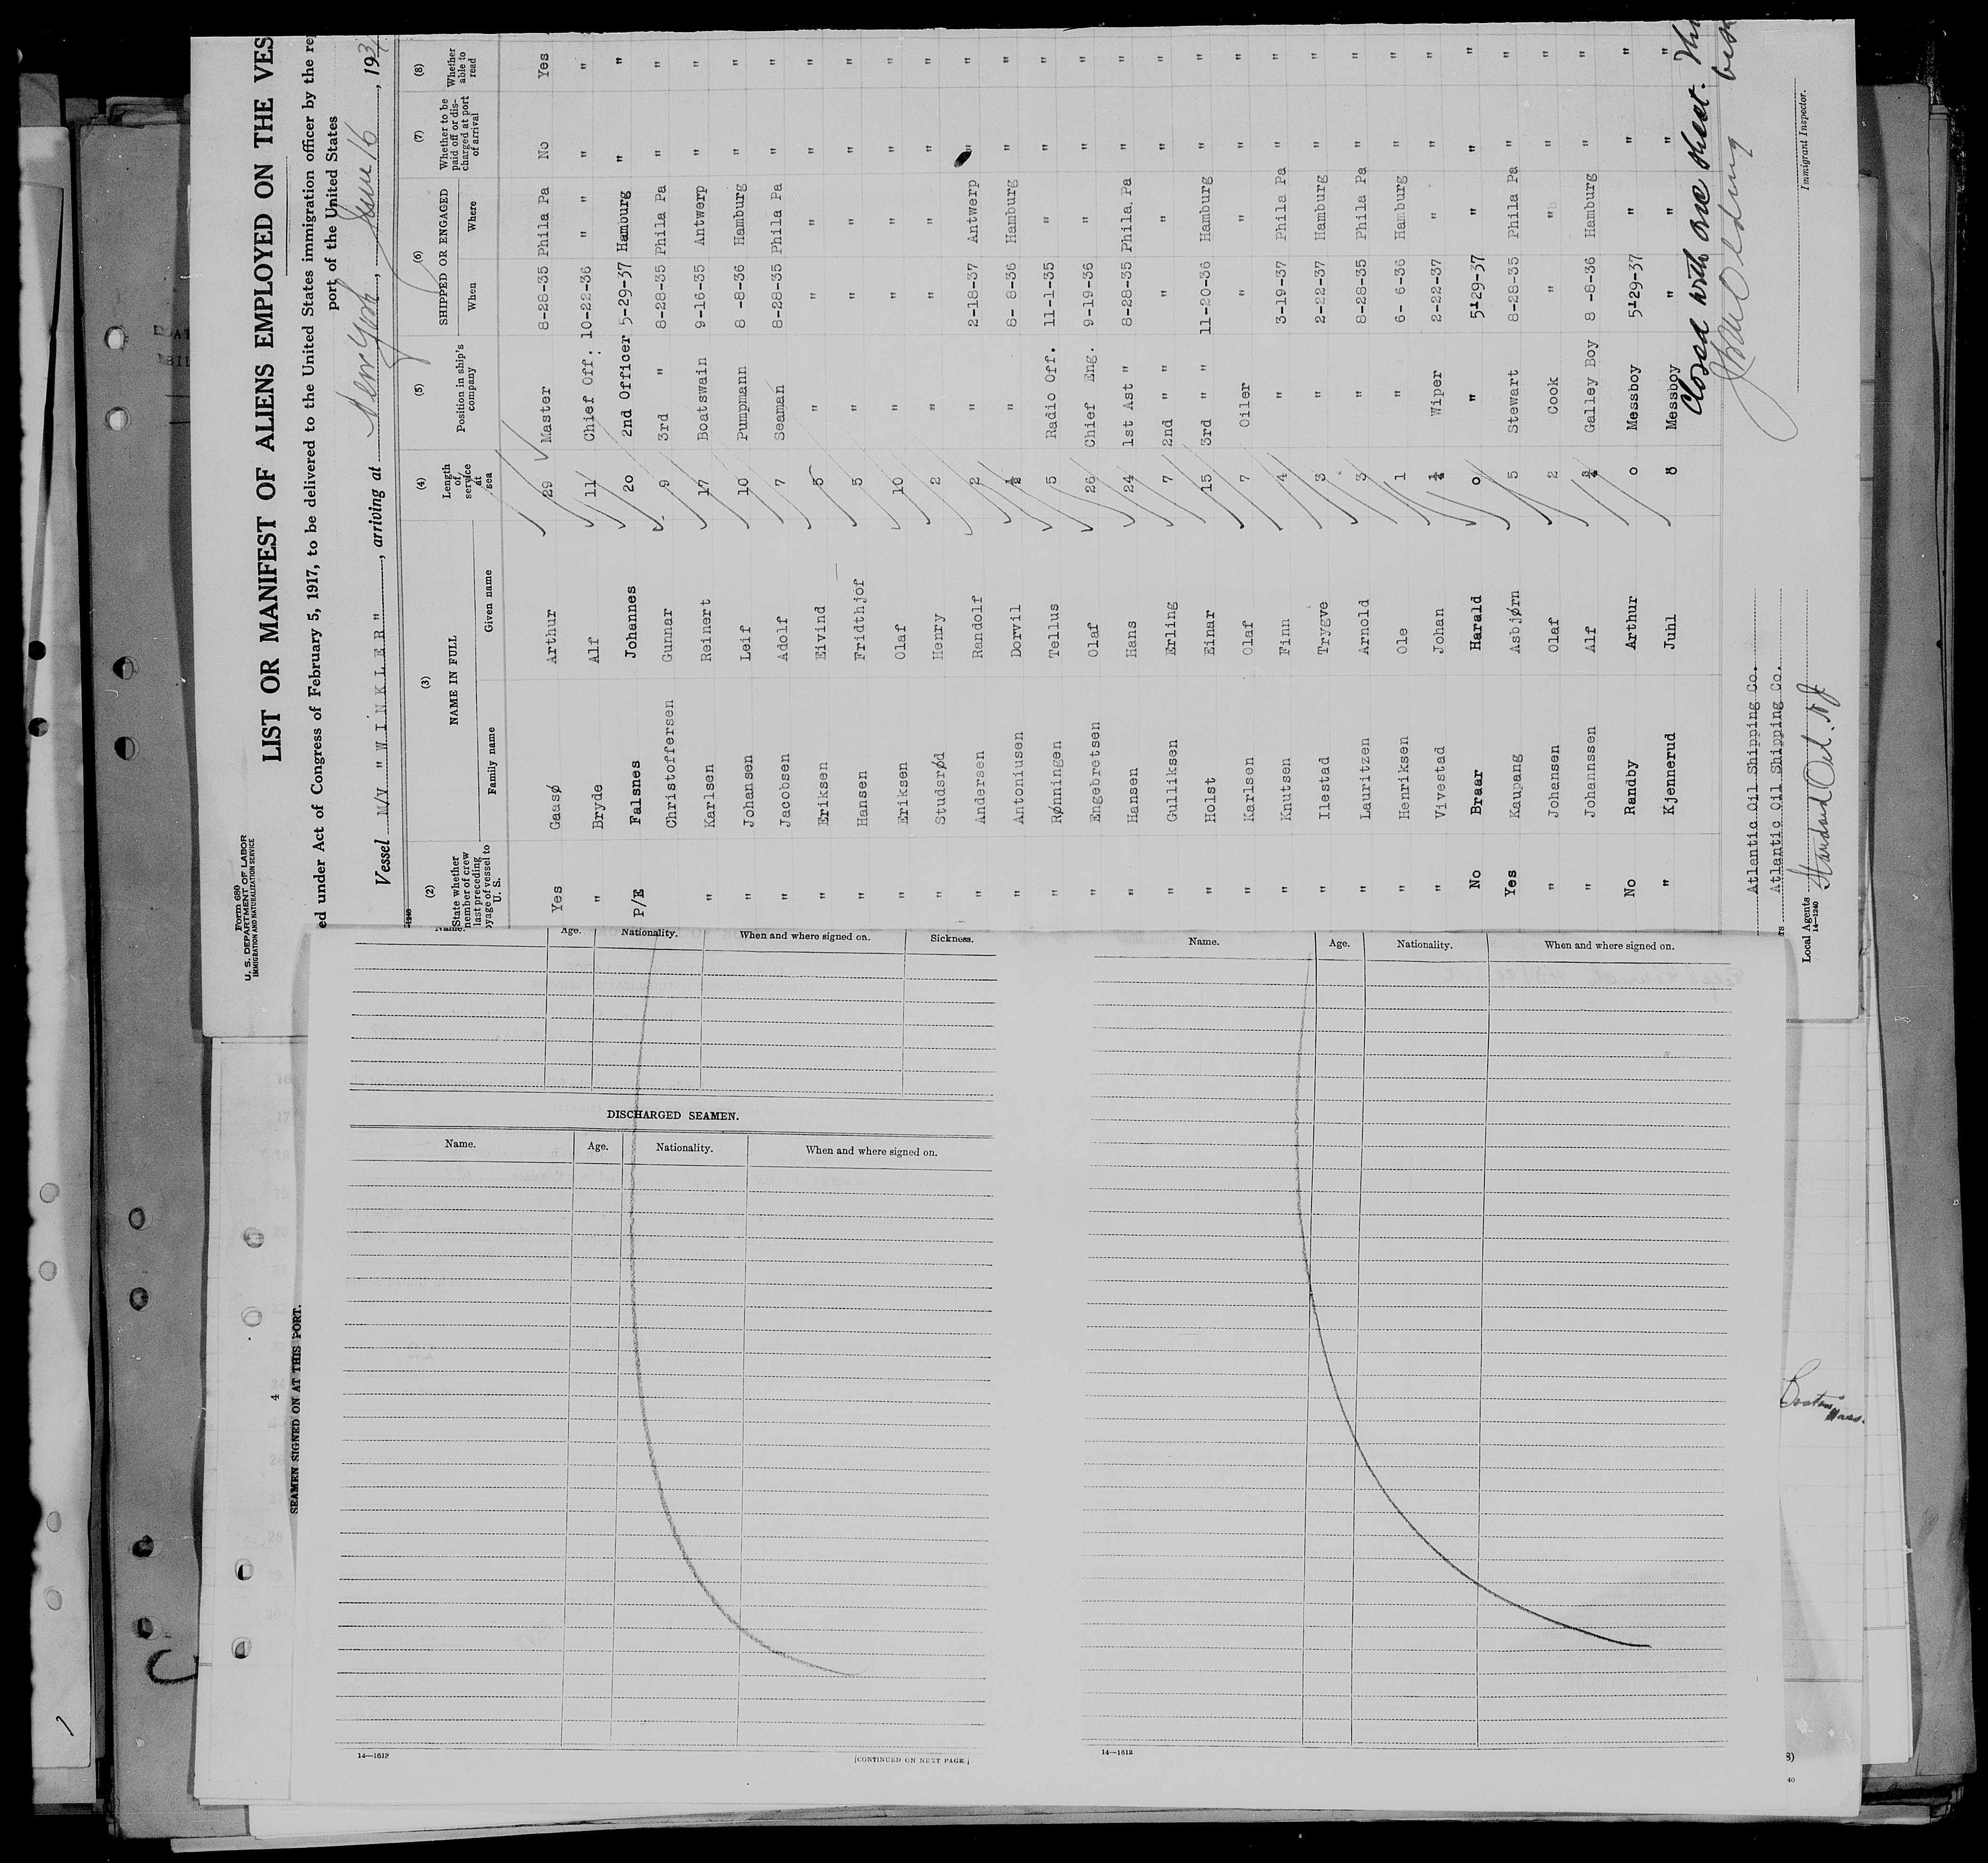 Form 680
U. S. DEPARTMENT OF LABOR
IMMIGRATION AND NATURALIZATION SERVICE
LIST OR MANIFEST OF ALIENS EMPLOYED ON THE VES
ed under Act of Congress of February 5, 1917, to be delivered to the United States immigration officer by the re
port of the United States
Vessel M/V " W I N K L E R ", arriving at New York, June 16, 193
(2) (3) (4) (5) (6) (7) (8)
State whether member of crew last preceding voyage of vessel to U. S.
NAME IN FULL
Family name Given name
Length of service at sea
Position in ship's company
SHIPPED OR ENGAGED
When Where
Whether to be paid off or discharged at port of arrival
Whether able to read
Yes Gaasø Arthur 29 Master 8-28-35 Phila Pa No Yes
" Bryde Alf 11 Chief Off. 10-22-36 " " " "
P/E Falsnes Johannes 20 2nd Officer 5-29-37 Hamburg " "
Christoffersen Gunnar 9 3rd " 8-28-35 Phila Pa " "
" Karlsen Reinert 17 Boatswain 9-16-35 Antwerp " "
" Johansen Leif 10 Pumpmann 8 -8-36 Hamburg " "
" Jacobsen Adolf 7 Seaman 8-28-35 Phila Pa " "
" Eriksen Eivind 5 " " " " "
" Hansen Fridthjof 5 " " " " "
" Eriksen Olaf 10 " " " " "
" Studsrød Henry 2 " " " " "
" Andersen Randolf 2 " 2-18-37 Antwerp " "
" Antoniusen Dorvil ½ " 8- 8-36 Hamburg " "
" Rønningen Tellus 5 Radio Off. 11-1-35 " " "
" Engebretsen Olaf 26 Chief Eng. 9-19-36 " " "
" Hansen Hans 24 1st Ast " 8-28-35 Phila. Pa " "
" Gulliksen Erling 7 2nd " " " " " "
" Holst Einar 15 3rd " " 11-20-36 Hamburg " "
" Karlsen Olaf 7 Oiler " " " "
" Knutsen Finn 4 " 3-19-37 Phila Pa " "
" Ilestad Trygve 3 " 2-22-37 Hamburg " "
" Lauritzen Arnold 3 " 8-28-35 Phila Pa " "
" Henriksen Ole 1 " 6- 6-36 Hamburg " "
" Vivestad Johan ¼ Wiper 2-22-37 " " "
No Braar Harald 0 " 5-29-37 " " "
Yes Kaupang Asbjørn 5 Stewart 8-28-35 Phila Pa " "
" Johansen Olaf 2 Cook " " " "
" Johannssen Alf ¾ Galley Boy 8 -8-36 Hamburg " "
No Randby Arthur 0 Messboy 5-29-37 " " "
" Kjennerud Juhl 0 Messboy " " " "
Closed with one sheet.
Atlantic Oil Shipping Co.
Atlantic Oil Shipping Co.
Local Agents Standard Oil. N.J.
14-1240
Immigrant Inspector.
4
SEAMEN SIGNED ON AT THIS PORT.
Name. Age. Nationality. When and where signed on. Sickness.
DISCHARGED SEAMEN.
Name. Age. Nationality. When and where signed on.
14—1612
[CONTINUED ON NEXT PAGE.]
Name. Age. Nationality. When and where signed on.
14—1612
Boston Mass.
8)
40